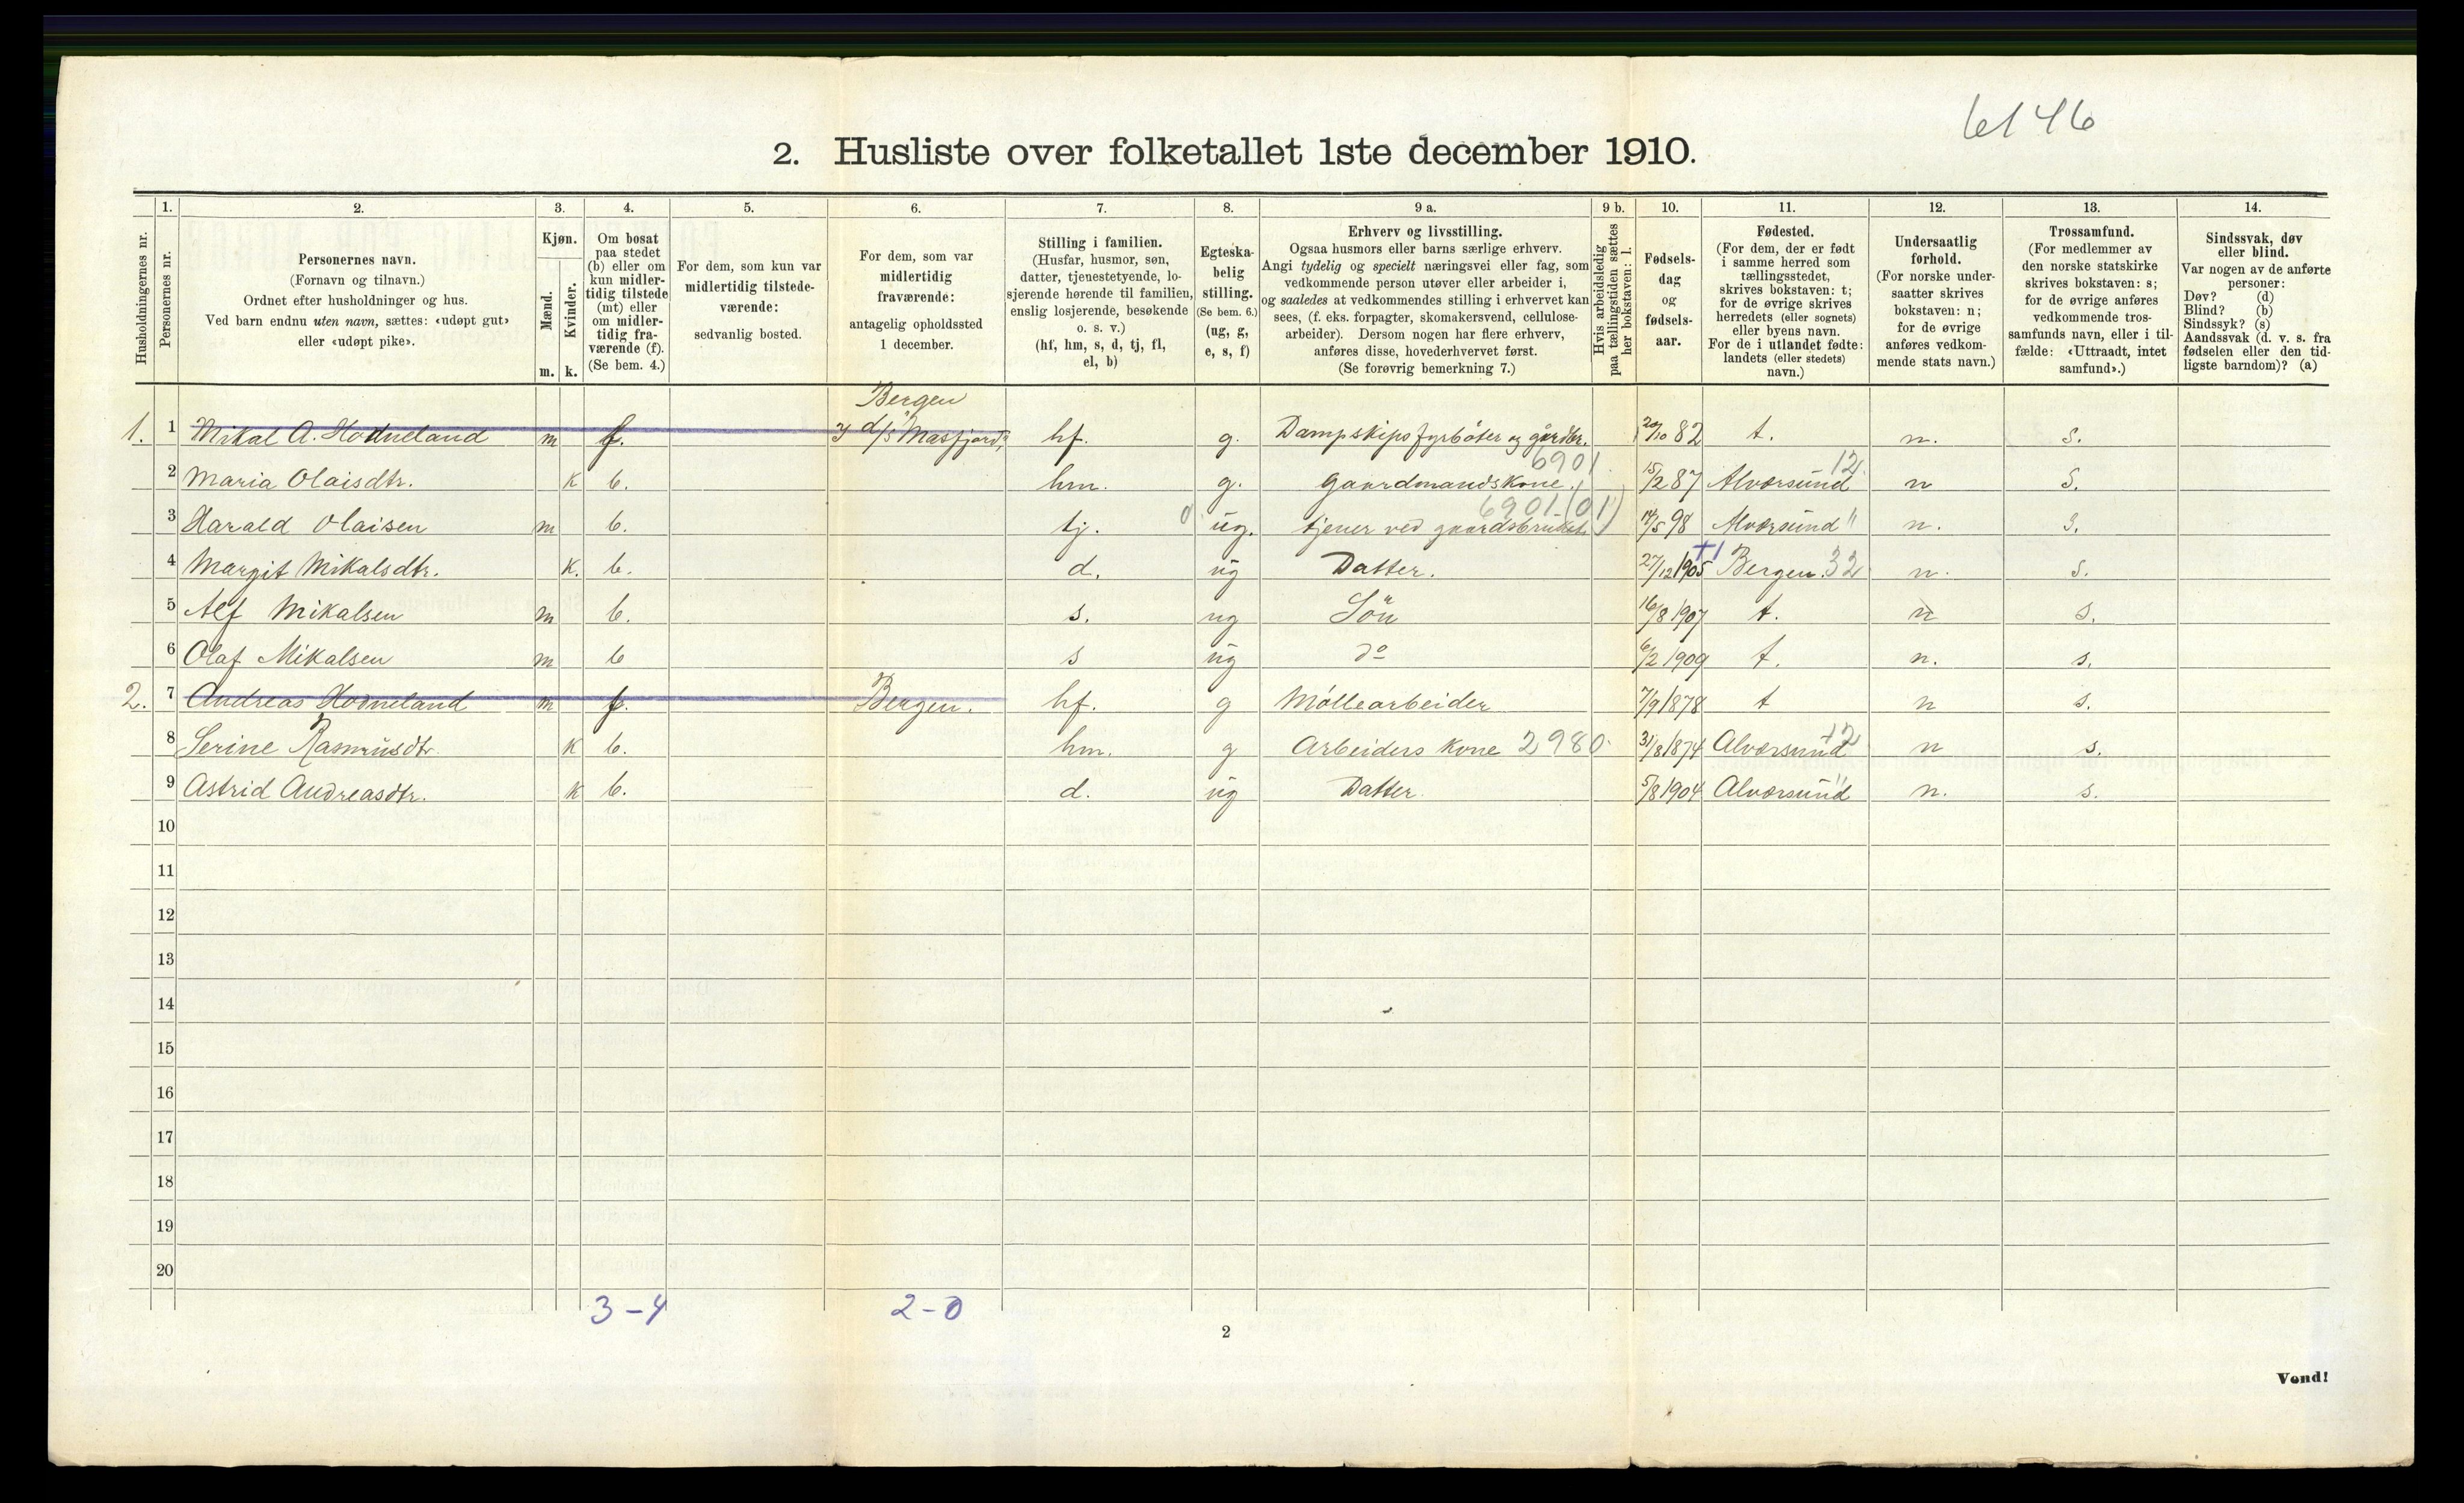 6146
2. Husliste over folketallet 1ste december 1910.
Husholdningernes nr.
1. Personernes nr.
2. Personernes navn.
(Fornavn og tilnavn.)
Ordnet efter husholdninger og hus.
Ved barn endnu uten navn, sættes: «udøpt gut»
eller «udøpt pike».
3. Kjøn.
Mænd. m.
Kvinder. k.
4. Om bosat
paa stedet
(b) eller om
kun midler-
tidig tilstede
(mt) eller
om midler-
tidig fra-
værende (f).
(Se bem. 4.)
5. For dem, som kun var
midlertidig tilstede-
værende:
sedvanlig bosted.
6. For dem, som var
midlertidig
fraværende:
antagelig opholdssted
1 december.
7. Stilling i familien.
(Husfar, husmor, søn,
datter, tjenestetyende, lo-
sjerende hørende til familien,
enslig losjerende, besøkende
o. s. v.)
(hf, hm, s, d, tj, fl,
el, b)
8. Egteska-
belig
stilling.
(Se bem. 6.)
(ug, g,
e, s, f)
9 a. Erhverv og livsstilling.
Ogsaa husmors eller barns særlige erhverv.
Angi tydelig og specielt næringsvei eller fag, som
vedkommende person utøver eller arbeider i,
og saaledes at vedkommendes stilling i erhvervet kan
sees, (f. eks. forpagter, skomakersvend, cellulose-
arbeider). Dersom nogen har flere erhverv,
anføres disse, hovederhvervet først.
(Se forøvrig bemerkning 7.)
9 b. Hvis arbeidsledig
paa tællingstiden sættes
her bokstaven: l.
10. Fødsels-
dag
og
fødsels-
aar.
11. Fødested.
(For dem, der er født
i samme herred som
tællingsstedet,
skrives bokstaven: t;
for de øvrige skrives
herredets (eller sognets)
eller byens navn.
For de i utlandet fødte:
landets (eller stedets)
navn.)
12. Undersaatlig
forhold.
(For norske under-
saatter skrives
bokstaven: n;
for de øvrige
anføres vedkom-
mende stats navn.)
13. Trossamfund.
(For medlemmer av
den norske statskirke
skrives bokstaven: s;
for de øvrige anføres
vedkommende tros-
samfunds navn, eller i til-
fælde: «Uttraadt, intet
samfund».)
14. Sindssvak, døv
eller blind.
Var nogen av de anførte
personer:
Døv? (d)
Blind? (b)
Sindssyk? (s)
Aandssvak (d. v. s. fra
fødselen eller den tid-
ligste barndom)? (a)
Bergen
1. 1 Mikal A. Hodneland m f. d/s "Masfjord" hf. g. Dampskipsfyrböter og gårdbr. 20/10 82 t. n. s.
6901 12
2 Maria Olaisdtr. k b. hm. g. gaardmandskone. 15/2 87 Alversund n s.
6901 (01)
3 Harald Olaisen m b. tj. ug. tjener ved gaardsbruket 14/5 98 Alversund " n. s.
4 Margit Mikalsdtr. k. b. d. ug Datter. 27/12 1905 Bergen. 32 n. s.
5 Alf Mikalsen m b. s. ug Sön 16/8 1907 t. n s.
6 Olaf Mikalsen m b s ug do 6/2 1909 t. n. s.
2. 7 Andreas Hodneland m f. Bergen. hf. g Möllearbeider 7/9 1878 t n s.
8 Serine Rasmusdtr. k b. hm. g Arbeiders kone 2980 31/8 1874 Alversund 12 n s.
9 Astrid Andreasdtr. k b. d. ug Datter 5/8 1904 Alversund " n. s.
10
11
12
13
14
15
16
17
18
19
20
3-4 2-0
2
Vend!